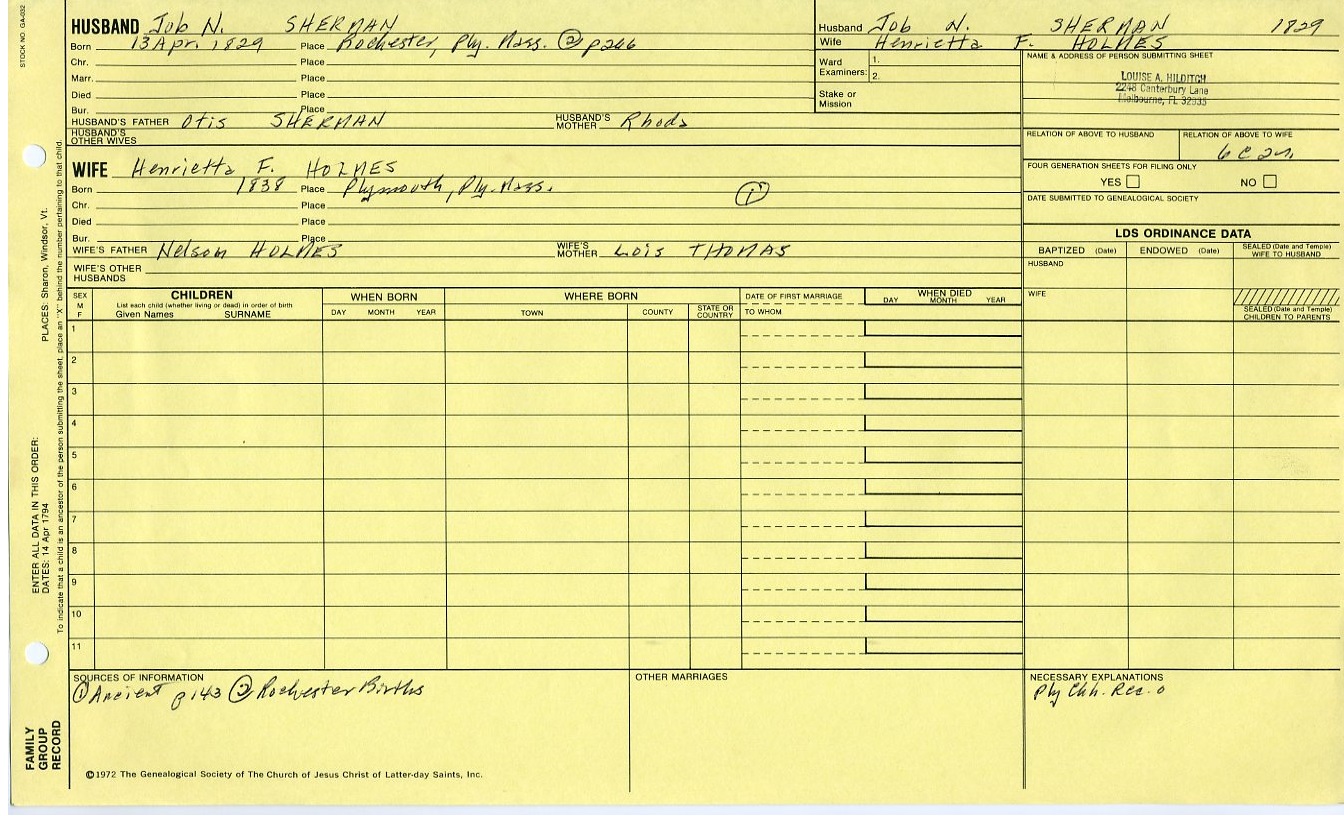 STOCK NO. GA-032
HUSBAND Job N. SHERMAN
Born 13 Apr. 1829 Place Rochester, Ply. Mass. ② p246
Chr. Place
Marr. Place
Died Place
Bur. Place
HUSBAND'S FATHER Otis SHERMAN HUSBAND'S MOTHER Rhoda
HUSBAND'S OTHER WIVES
WIFE Henrietta F. HOLMES
Born 1838 Place Plymouth, Ply. Mass. ①
Chr. Place
Died Place
Bur. Place
WIFE'S FATHER Nelson HOLMES WIFE'S MOTHER Lois THOMAS
WIFE'S OTHER HUSBANDS
Husband Job N. SHERMAN 1829
Wife Henrietta F. HOLMES
Ward Examiners: 1.
2.
Stake or Mission
NAME & ADDRESS OF PERSON SUBMITTING SHEET
LOUISE A. HILDITCH
2248 Canterbury Lane
Melbourne, FL 32935
RELATION OF ABOVE TO HUSBAND RELATION OF ABOVE TO WIFE
6c2r.
FOUR GENERATION SHEETS FOR FILING ONLY
YES NO
DATE SUBMITTED TO GENEALOGICAL SOCIETY
LDS ORDINANCE DATA
BAPTIZED (Date) ENDOWED (Date) SEALED (Date and Temple) WIFE TO HUSBAND
HUSBAND
WIFE
SEALED (Date and Temple) CHILDREN TO PARENTS
SEX M F
CHILDREN
List each child (whether living or dead) in order of birth
Given Names SURNAME
WHEN BORN
DAY MONTH YEAR
WHERE BORN
TOWN COUNTY STATE OR COUNTRY
DATE OF FIRST MARRIAGE
TO WHOM
WHEN DIED
DAY MONTH YEAR
1
2
3
4
5
6
7
8
9
10
11
SOURCES OF INFORMATION
① Ancient p 143 ② Rochester Births
OTHER MARRIAGES
NECESSARY EXPLANATIONS
Ply Chh. Rec. o
©1972 The Genealogical Society of The Church of Jesus Christ of Latter-day Saints, Inc.
FAMILY GROUP RECORD
ENTER ALL DATA IN THIS ORDER:
DATES: 14 Apr 1794
PLACES: Sharon, Windsor, Vt.
To indicate that a child is an ancestor of the person submitting the sheet, place an "X" behind the number pertaining to that child.